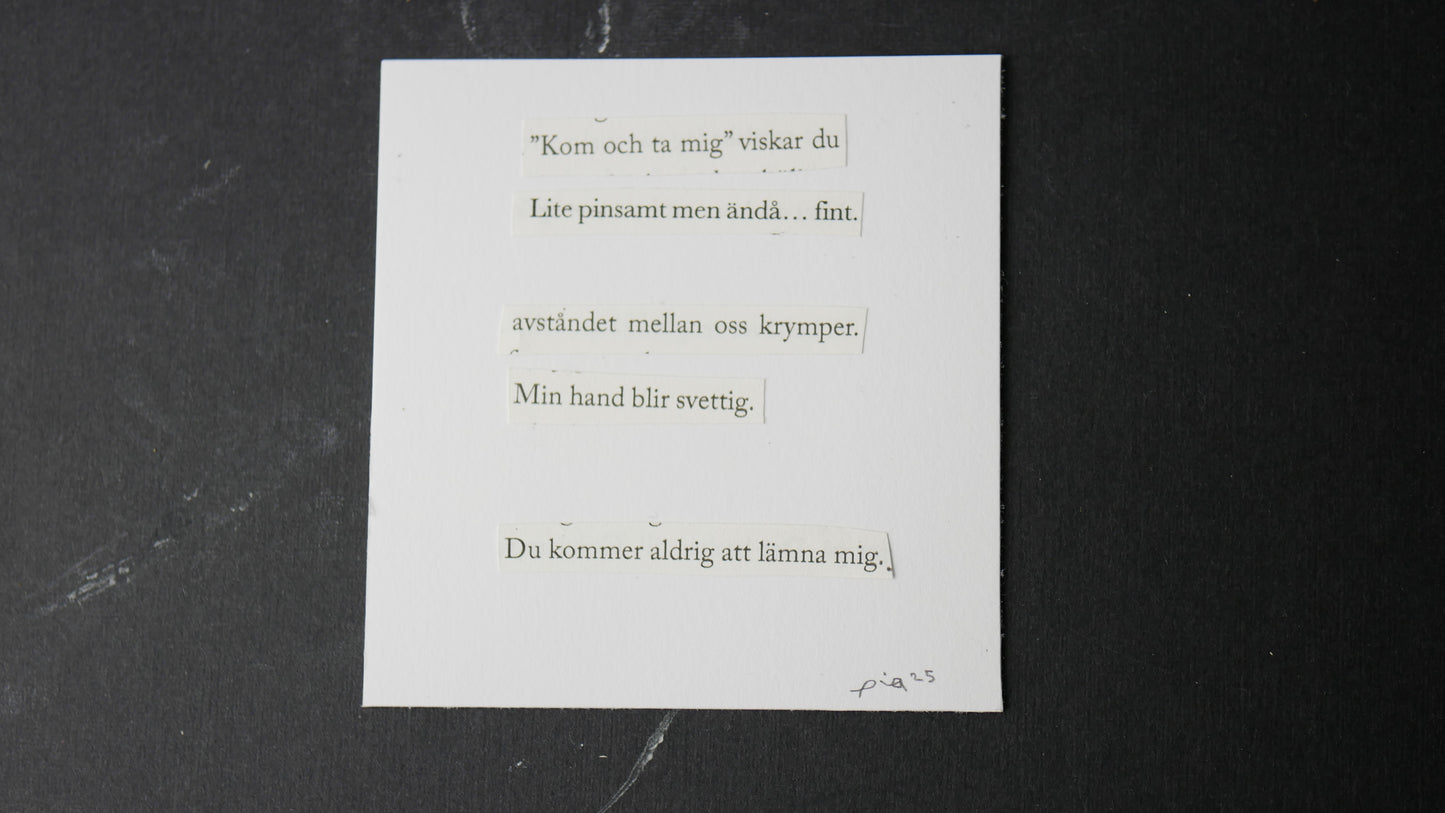 ”Kom och ta mig” viskar du
Lite pinsamt men ändå… fint.
avståndet mellan oss krymper.
Min hand blir svettig.
Du kommer aldrig att lämna mig.
pia 25